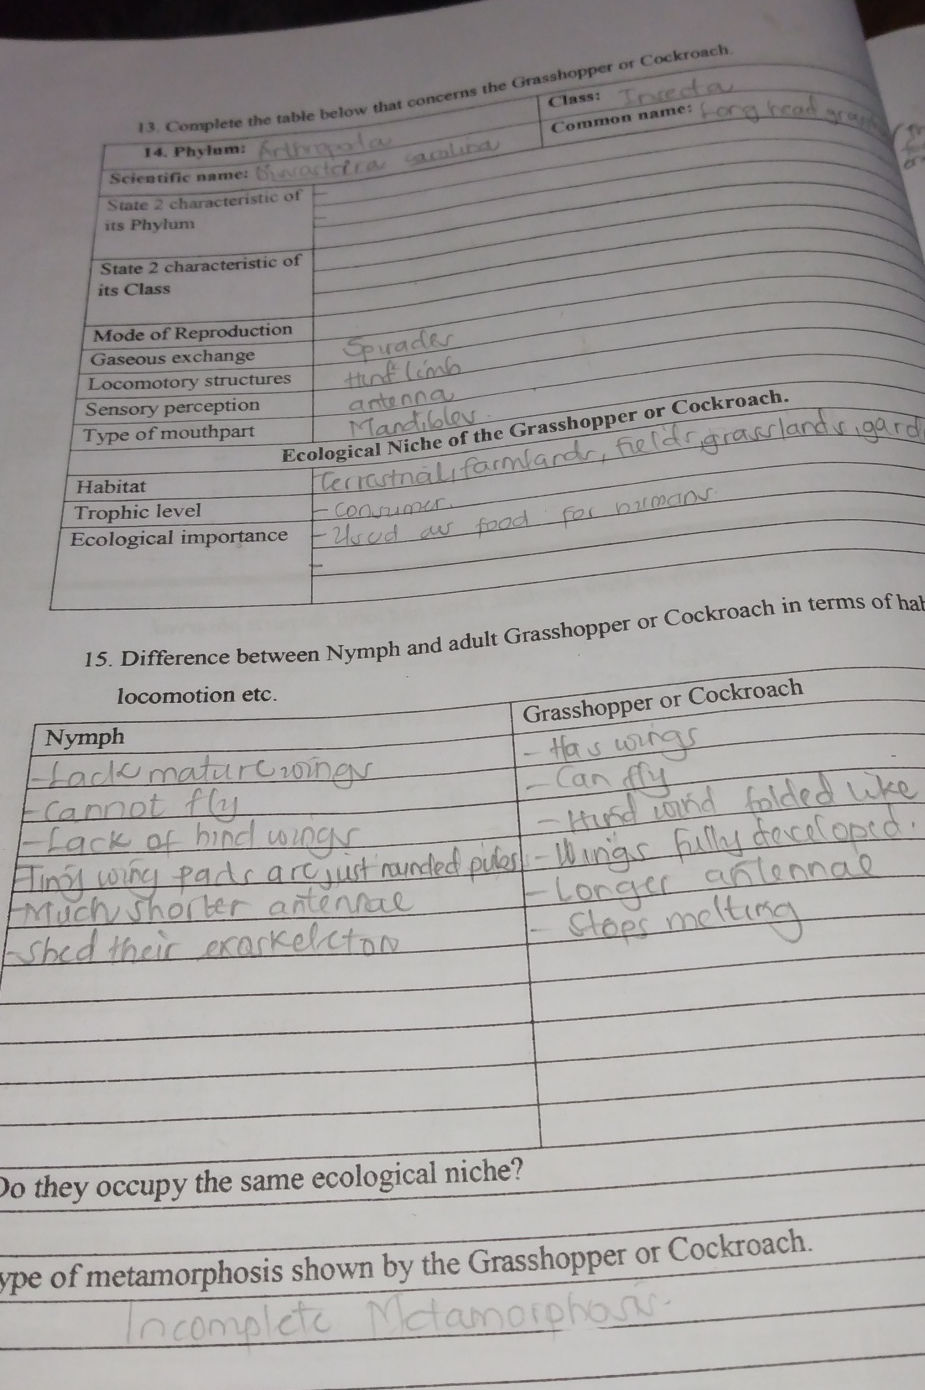 13. Complete the table below that concerns the Grasshopper or Cockroach.
14. Phylum: Arthropoda
Class: Insecta
Scientific name: carolina
Common name: Long head
State 2 characteristic of
its Phylum
State 2 characteristic of
its Class
Mode of Reproduction
Gaseous exchange Spirades
Locomotory structures limb
Sensory perception antenna
Type of mouthpart Mandibles.
Ecological Niche of the Grasshopper or Cockroach.
Habitat farmlands, fields, grasslands, gard
Trophic level - consumer.
Ecological importance - Used as food for humans.
15. Difference between Nymph and adult Grasshopper or Cockroach in terms of hab
locomotion etc.
Nymph
Grasshopper or Cockroach
- Lack mature wings
- Has wings
- Cannot fly
- Can fly
- Lack of hind wings
- Hind wind folded like
- Tiny wing pads are just rounded
- Wings fully developed.
- Much shorter antennae
- Longer antennae
- Shed their exoskeleton
- Stops melting
Do they occupy the same ecological niche?
ype of metamorphosis shown by the Grasshopper or Cockroach.
Incomplete Metamorphosis.